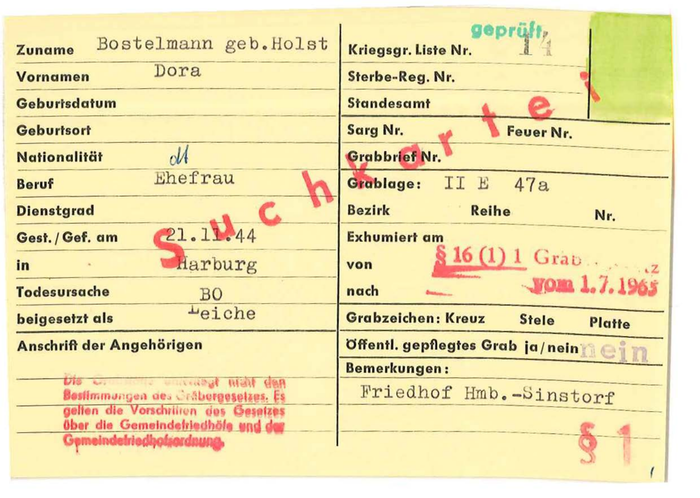 Zuname Bostelmann geb.Holst
Vornamen Dora
Geburtsdatum
Geburtsort
Nationalität dt
Beruf Ehefrau
Dienstgrad
Gest./Gef. am 21.11.44
in Harburg
Todesursache BO
beigesetzt als Leiche
Anschrift der Angehörigen
Die unterliegt nicht den
Bestimmungen des Gräbergesetzes. Es
gelten die Vorschriften des Gesetzes
über die Gemeindefriedhöfe und der
Gemeindefriedhofsordnung.
Suchkartei
geprüft,
Kriegsgr. Liste Nr. 14
Sterbe-Reg. Nr.
Standesamt
Sarg Nr. Feuer Nr.
Grabbrief Nr.
Grablage: II E 47a
Bezirk Reihe Nr.
Exhumiert am
von § 16 (1) 1
nach vom 1.7.1965
Grabzeichen: Kreuz Stele Platte
Öffentl. gepflegtes Grab ja/nein nein
Bemerkungen:
Friedhof Hmb.-Sinstorf
§ 1